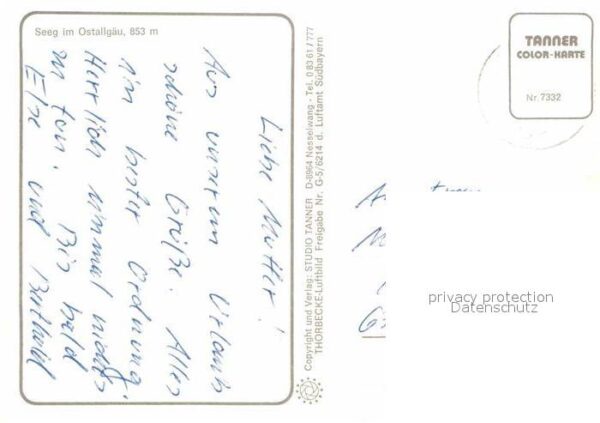 Seeg im Ostallgäu, 853 m
Liebe Mutter!
Aus unserem Urlaub
schöne Grüße. Alles
in bester Ordnung.
Herrlich einmal nichts
zu tun. Bis bald
Else und
Copyright und Verlag: STUDIO TANNER D-8964 Nesselwang - Tel. 0 83 61 / 777
THORBECKE-Luftbild Freigabe Nr. G-5/6214 d. Luftamt Südbayern
TANNER
COLOR-KARTE
Nr. 7332
privacy protection
Datenschutz